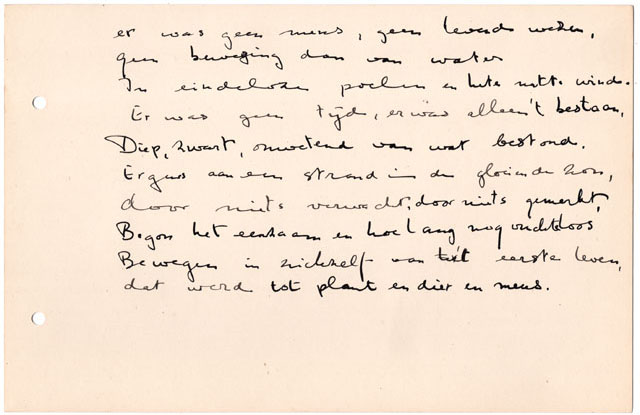 er was geen mens, geen levend wezen,
geen beweging dan van water
In eindeloze poelen en hete natte wind.
Er was geen tijd, er was alleen 't bestaan,
Diep, zwart, onwetend van wat bestond.
Ergens aan een strand in de gloeiende zon,
door niets verwacht, door niets gemerkt,
Begon het eenzaam en hoe lang nog vruchtloos
Bewegen in zichzelf van 't eerste leven,
dat werd tot plant en dier en mens.